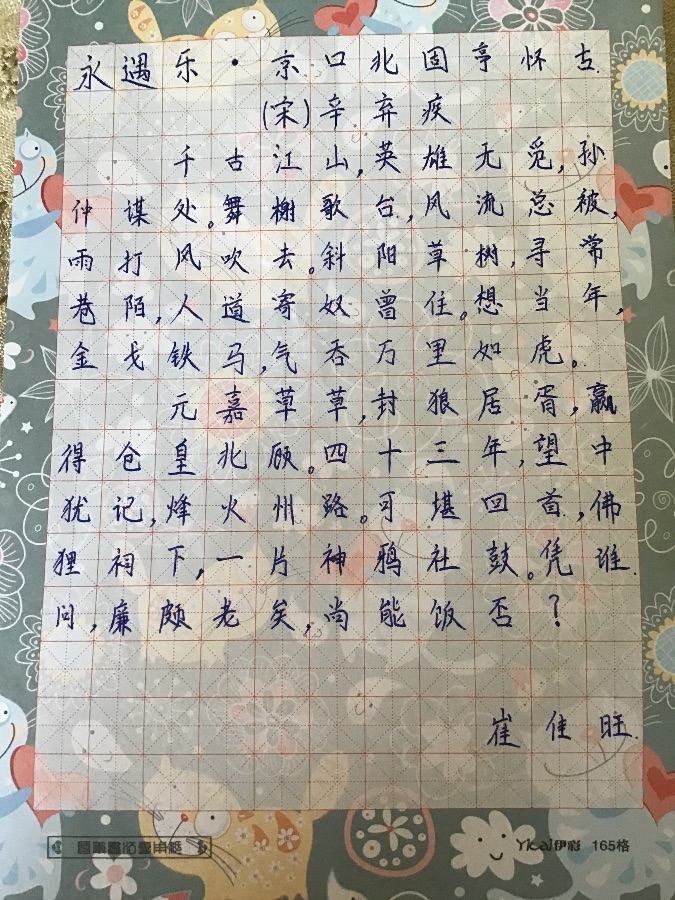 永遇乐·京口北固亨怀古
(宋)辛弃疾
千古江山,英雄无觅,孙
仲谋处。舞榭歌台,风流总被,
雨打风吹去。斜阳草树,寻常
巷陌,人道寄奴曾住。想当年,
金戈铁马,气吞万里如虎。
元嘉草草,封狼居胥,赢
得仓皇北顾。四十三年,望中
犹记,烽火州路。可堪回首,佛
狸祠下,一片神鸦社鼓。凭谁
问,廉颇老矣,尚能饭否?
崔佳旺
伊彩 165格